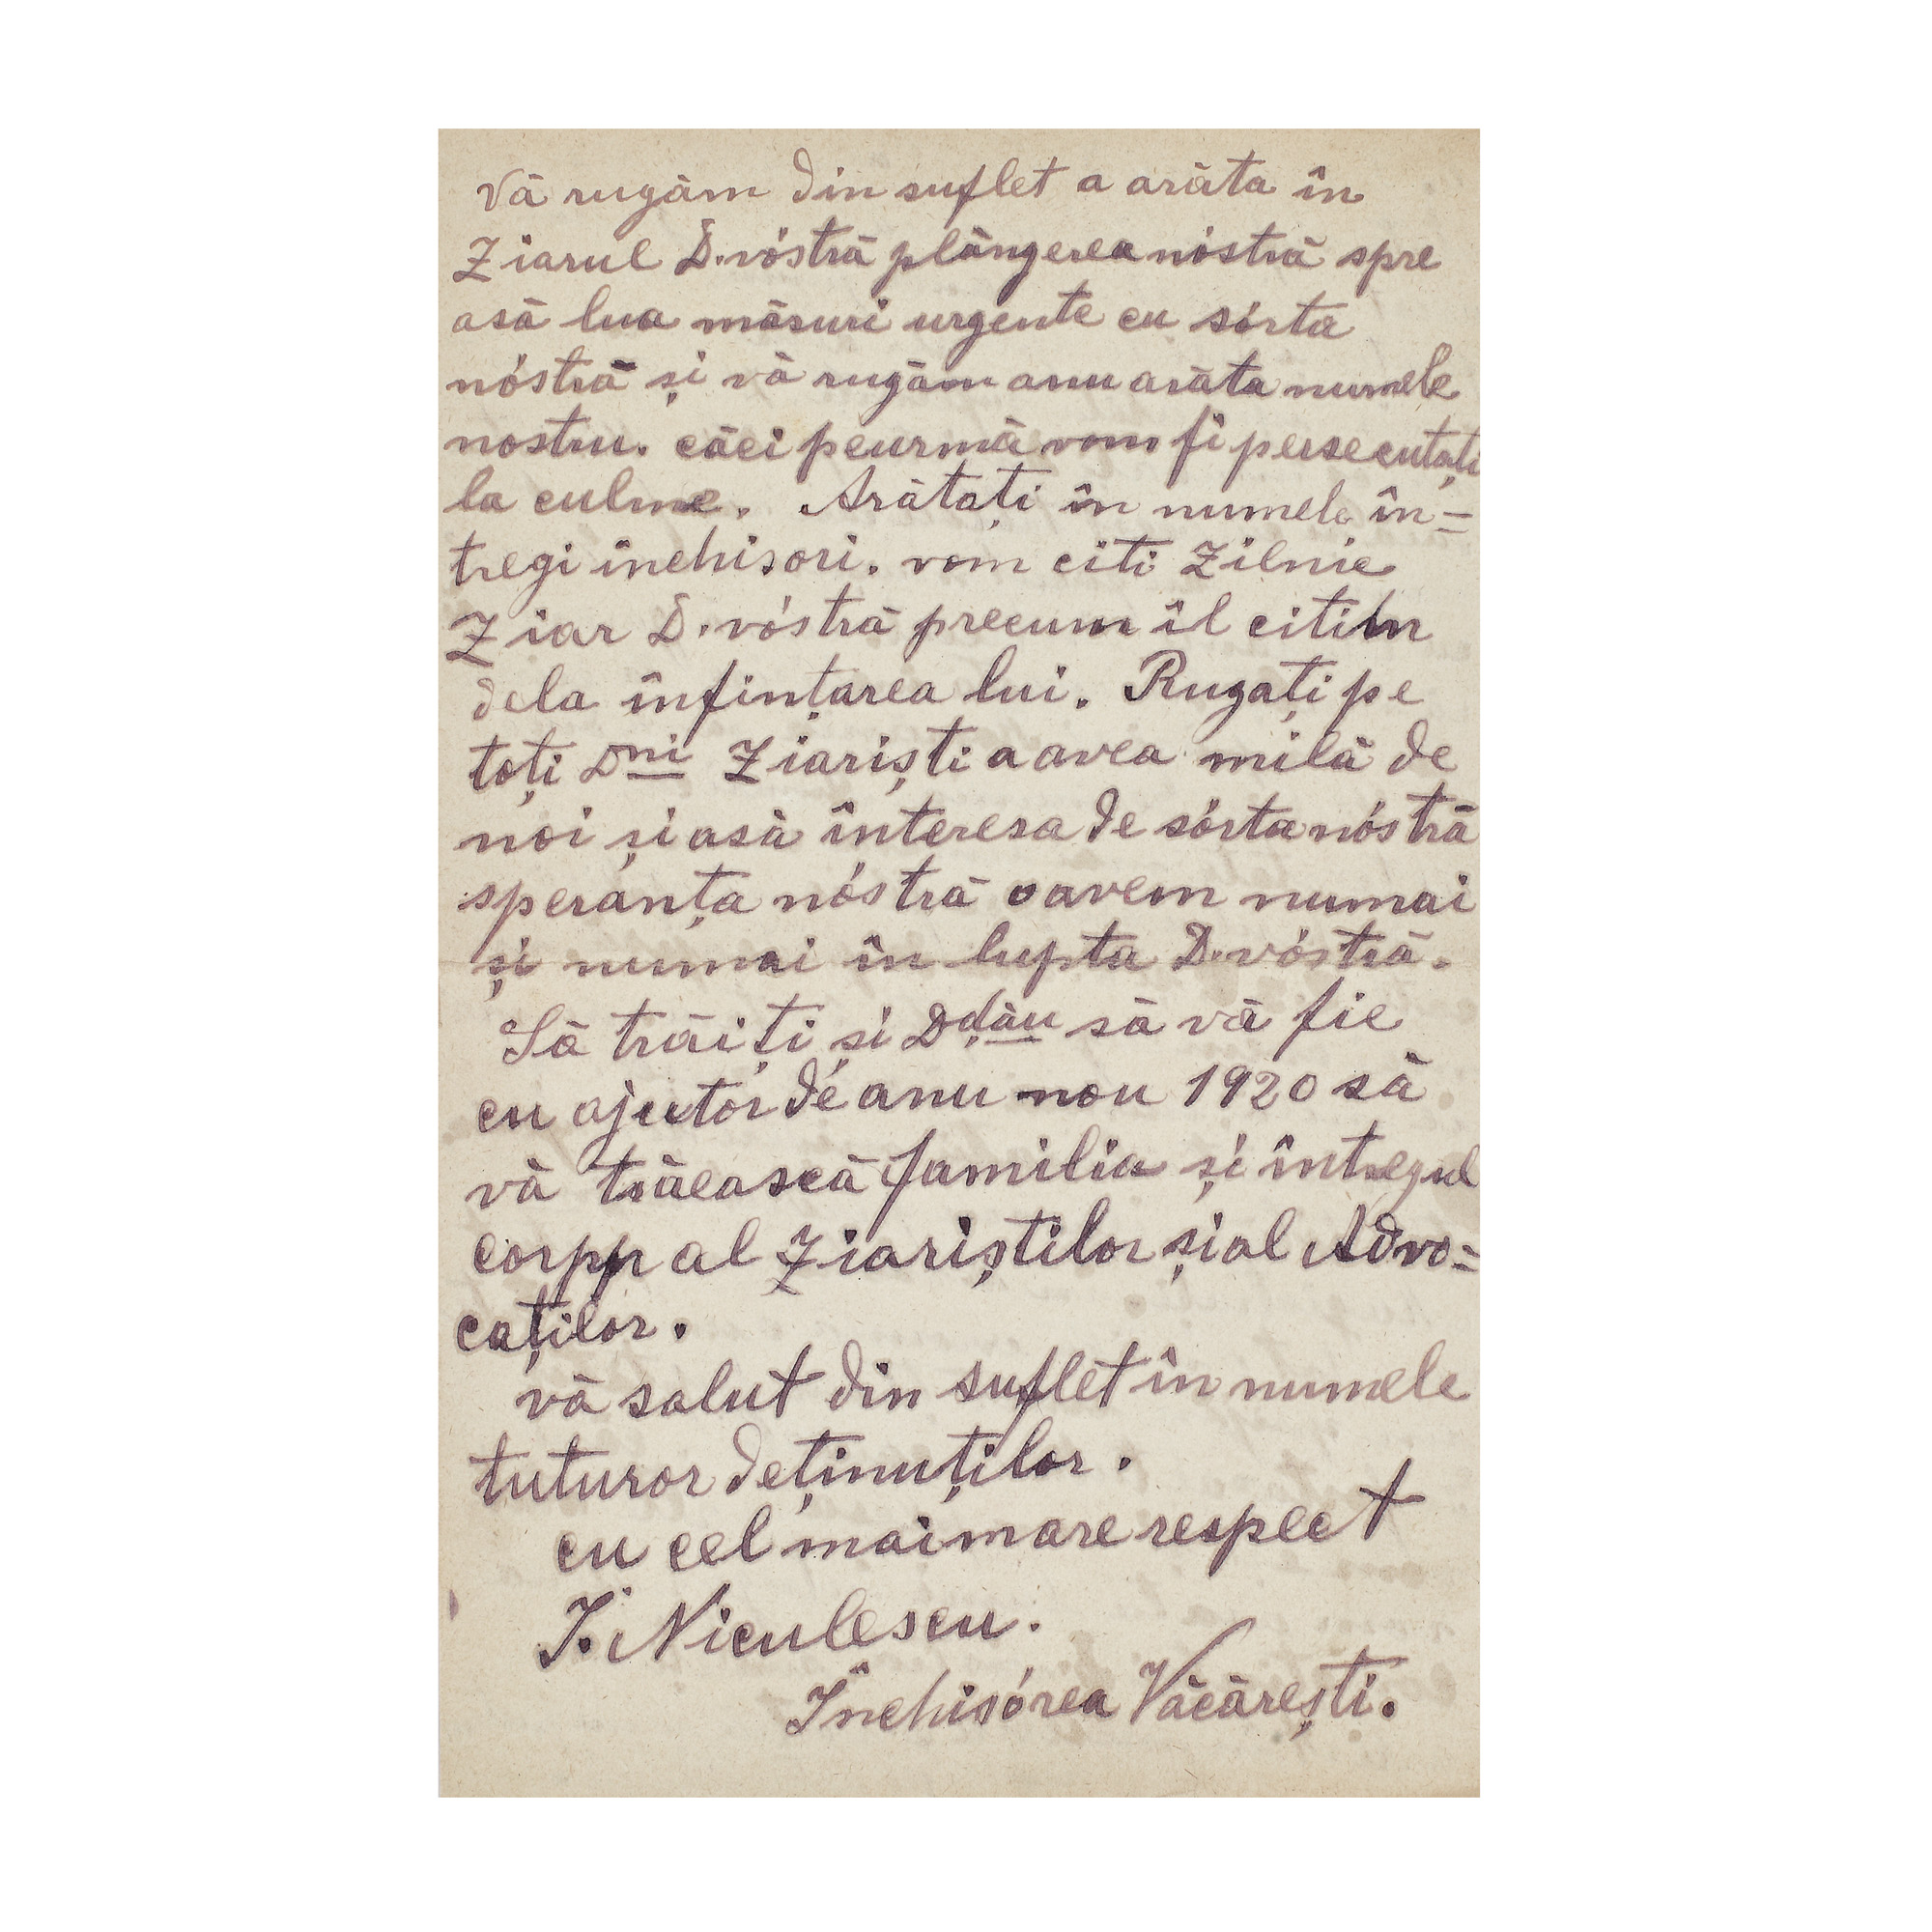 Vă rugăm din suflet a arăta în
Ziarul D.vóstră plângerea nóstră spre
asă lua măsuri urgente cu sórta
nóstră și vă rugăm anu arăta numele
nostru. căci peurmă vom fi persecutați
la culme. Arătați în numele în=
tregi închisori. vom citi Zilnic
Ziar D.vóstră precum îl citim
dela înființarea lui. Rugați pe
toți Dni Ziariști a avea milă de
noi și asă interesa de sórta nóstră
speranța nóstră o avem numai
și numai în lupta D.vóstră.
Să trăiți și Ddău să vă fie
cu ajutór dé anu nou 1920 să
vă trăească familia și întregul
corpp al Ziariștilor și al Advo=
caților.
vă salut din suflet în numele
tuturor deținuților.
cu cel mai mare respect
I. Niculescu.
Închisórea Văcărești.